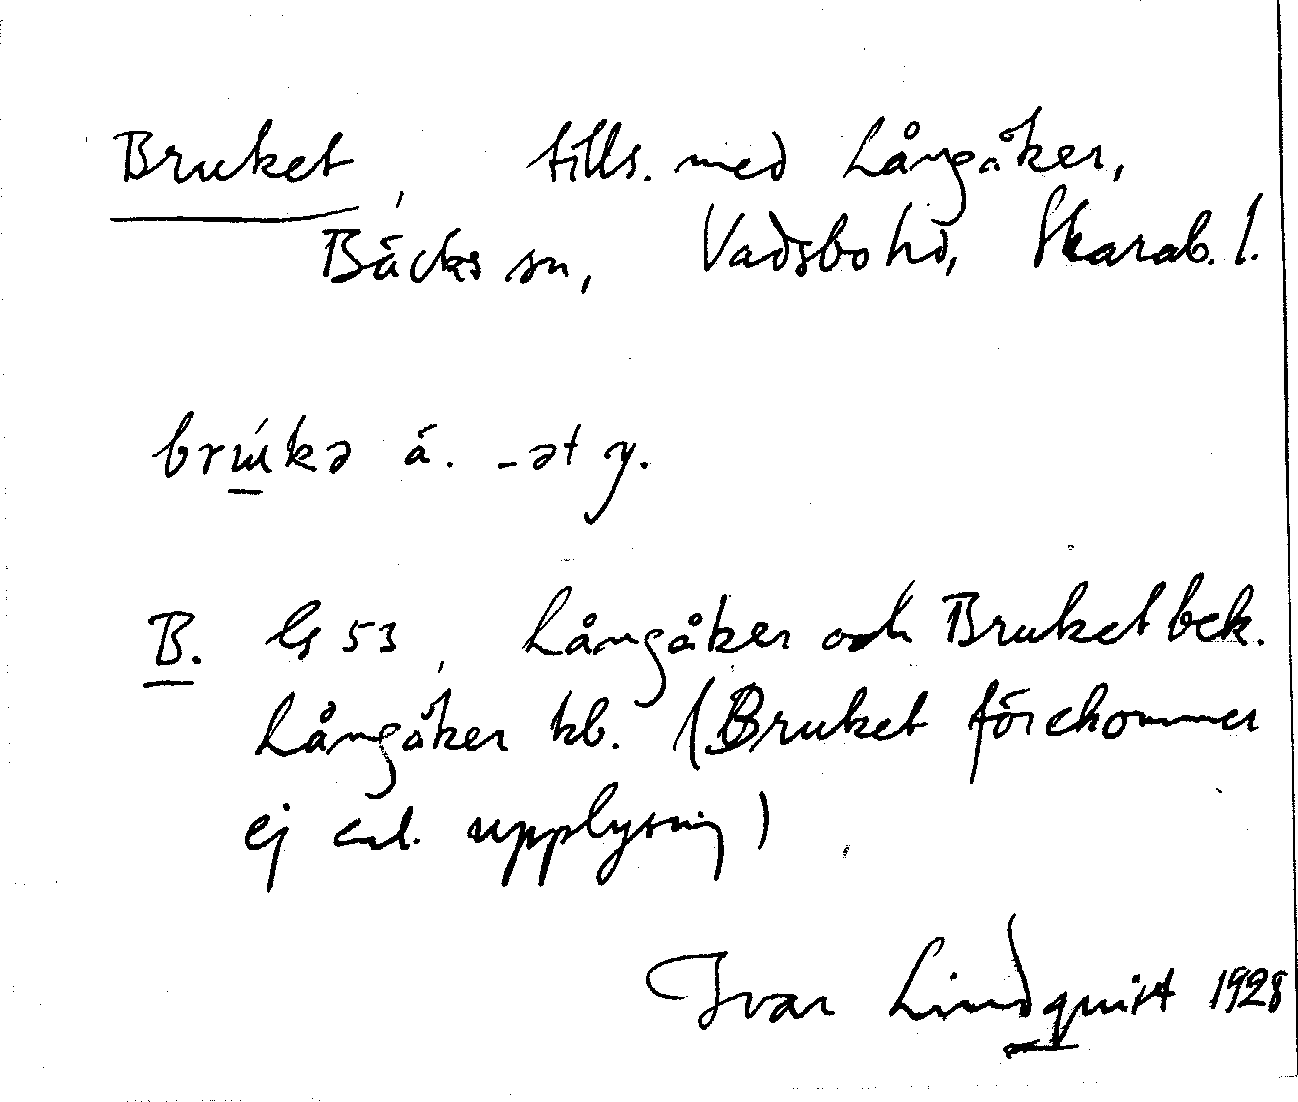 Bruket, tills. med Långåker,
Bäcks sn, Vadsbo hd, Skarab. l.
brúkə ä. -ət y.
B. GS 53, Långåker och Bruket bek.
Långåker kb. (Bruket förekommer
ej enl. upplysning)
Ivar Lindquist 1928